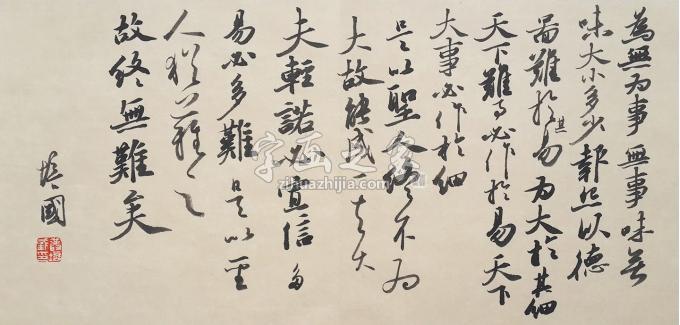 為無為事無事味無
味大小多少報怨以德
圖難於其易為大於其細
天下難事必作於易天下
大事必作於細
是以聖人終不為
大故能成其大
夫輕諾必寡信多
易必多難是以聖
人猶難之
故終無難矣
國
字画之家
zihuazhijia.com